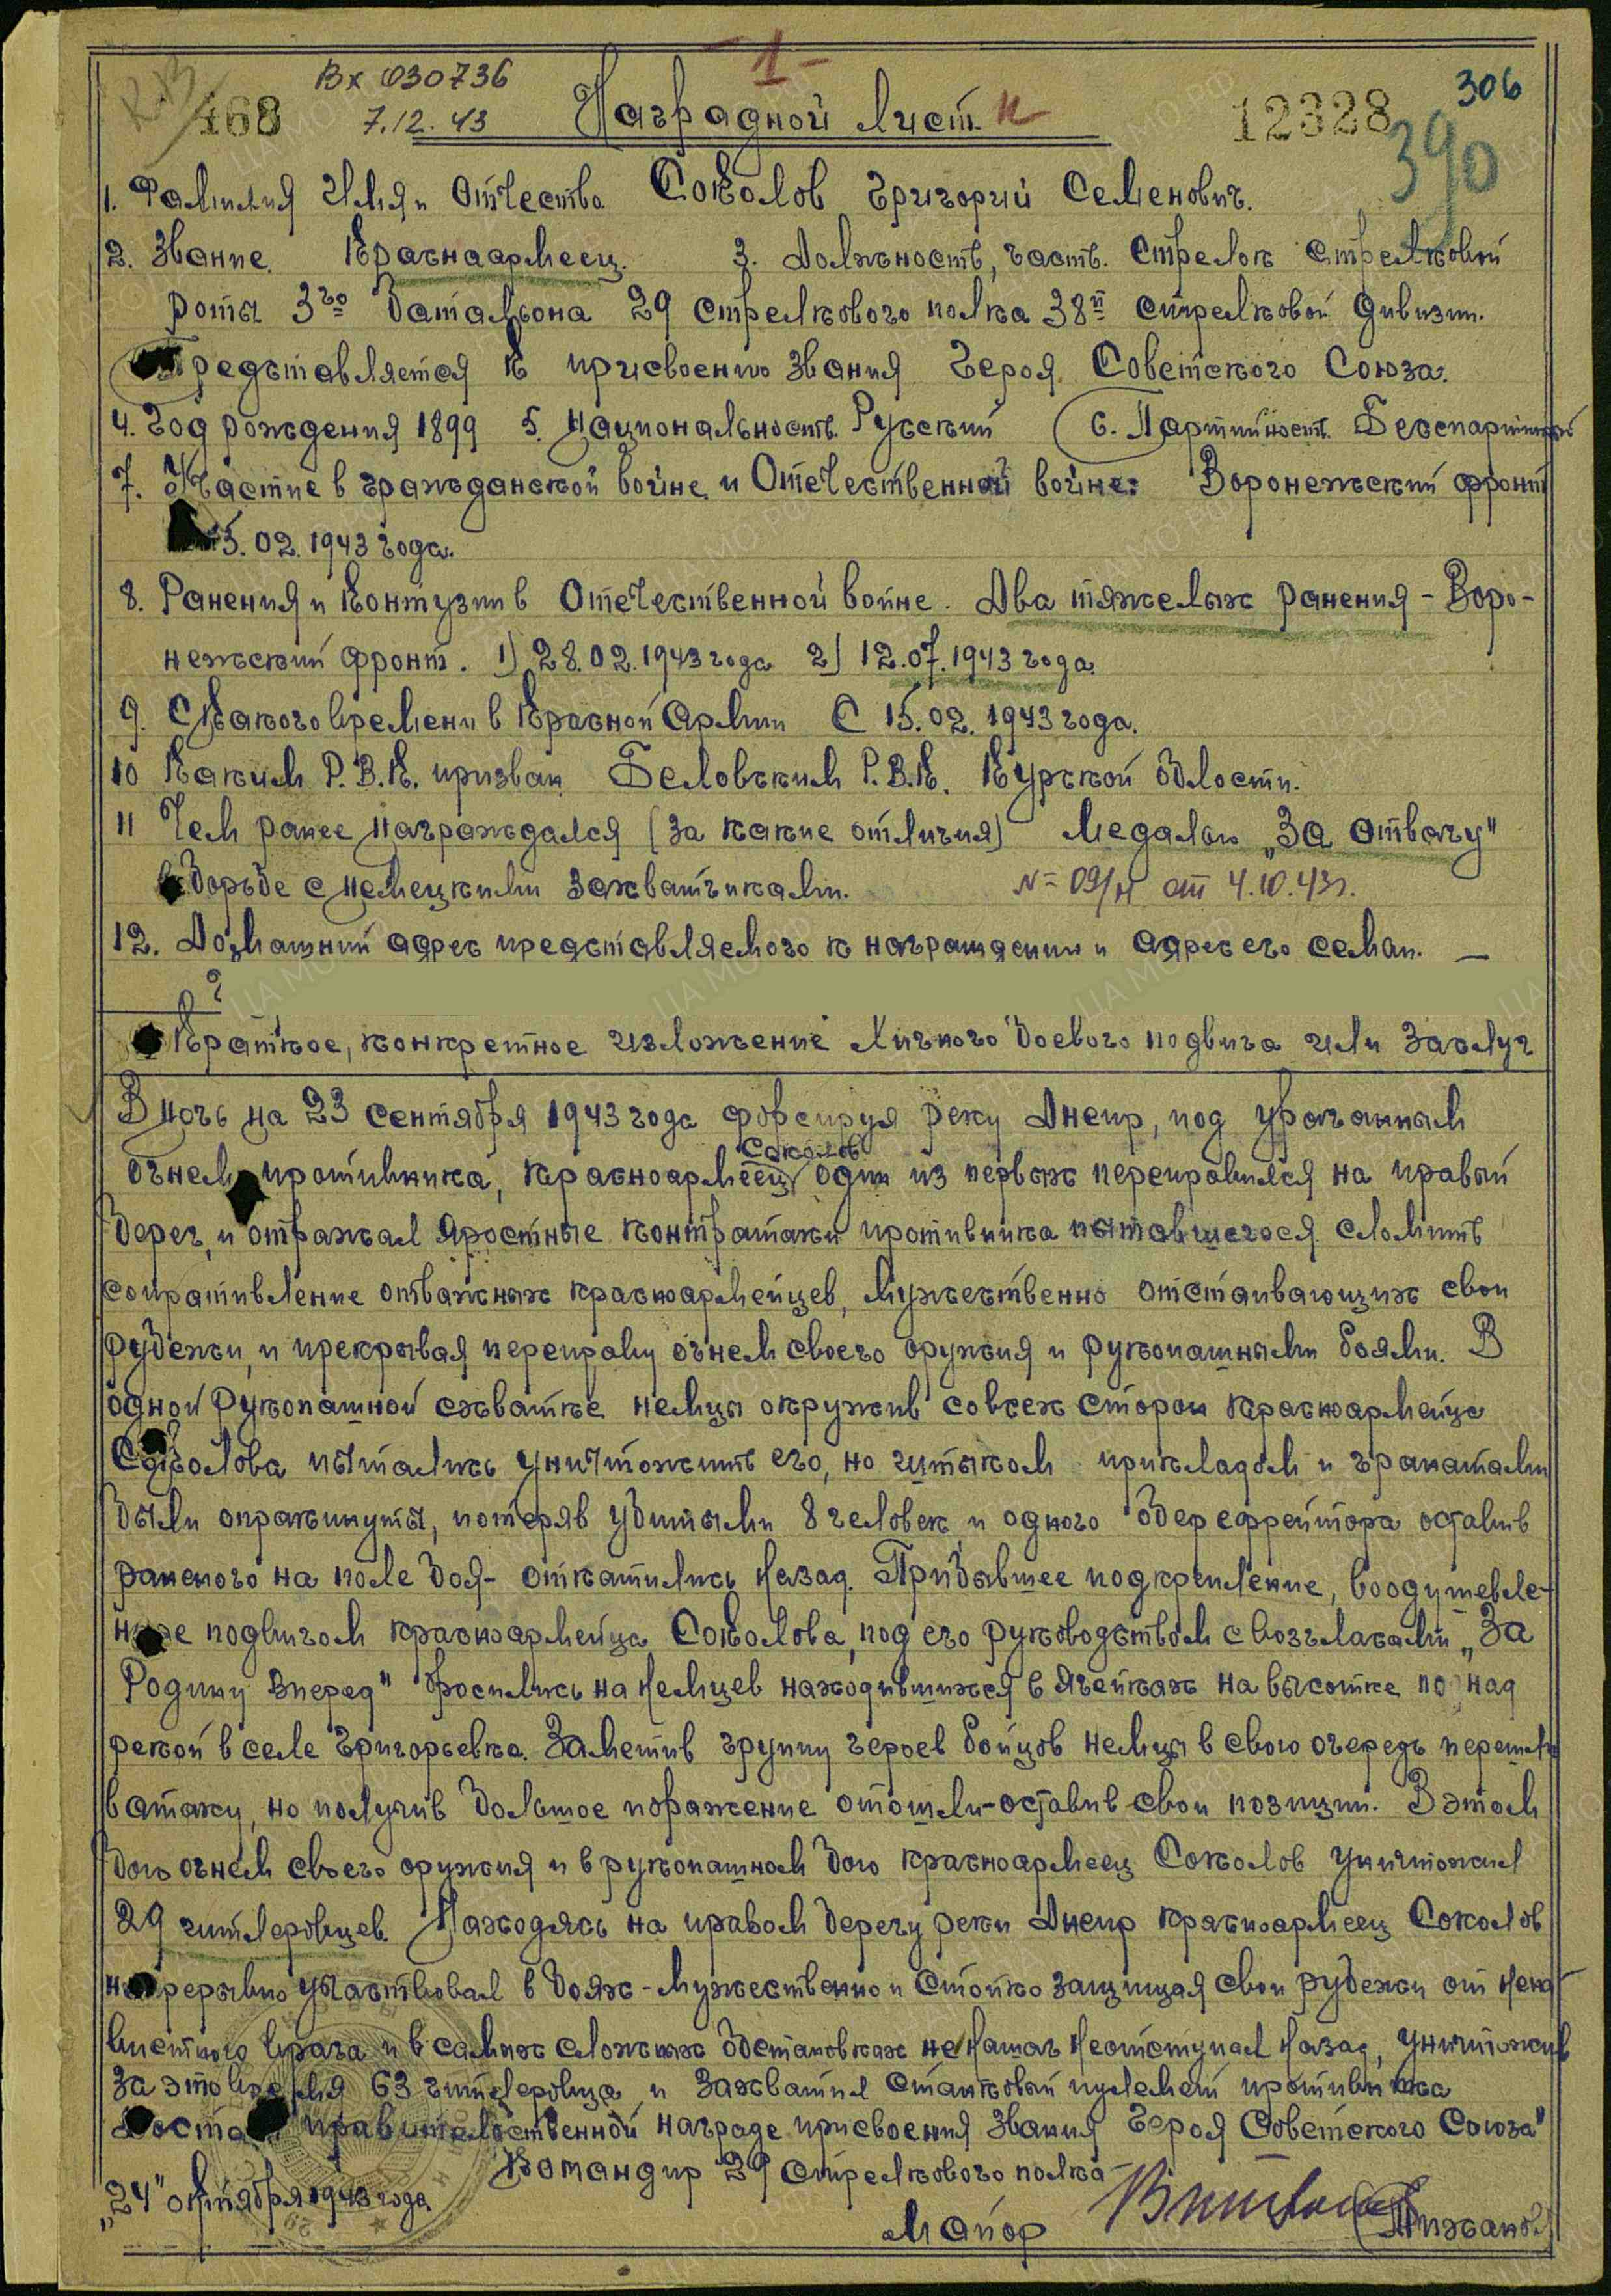 - 1 -
Вх 030736
306
468
7.12.43
Наградной Лист
12328
390
1. Фамилия Имя и Отчество Соколов Григорий Семенович.
2. Звание. Красноармеец. 3. Должность, часть. Стрелок стрелковой
роты 3го батальона 29 стрелкового полка 38й стрелковой дивизии.
Представляется к присвоению звания Героя Советского Союза.
4. Год рождения 1899 5. Национальность Русский 6. Партийность Беспартийный
7. Участие в гражданской войне и Отечественной войне: Воронежский фронт
5.02.1943 года.
8. Ранения и контузии в Отечественной войне. Два тяжелых ранения - Воро-
нежский фронт. 1) 28.02.1943 года 2) 12.07.1943 года
9. С какого времени в Красной Армии С 15.02.1943 года.
10 Каким Р.В.К. призван Беловским Р.В.К. Курской области.
11 Чем ранее награждался (за какие отличия) медалью „За отвагу"
в борьбе с немецкими захватчиками. № 09/н от 4.10.43г.
12. Домашний адрес представляемого к награждению и адрес его семьи. —
Краткое, конкретное изложение личного боевого подвига или заслуг
В ночь на 23 сентября 1943 года форсируя реку Днепр, под ураганным
Соколов
огнем противника, красноармеец один из первых переправился на правый
берег, и отражал яростные контратаки противника пытавшегося сломить
сопративление отважных красноармейцев, мужественно отстаивающих свои
рубежи, и прекрывая переправу огнем своего оружия и рукопашными боями. В
одной рукопашной схватке немцы окружив со всех сторон красноармейца
Соколова пытались уничтожить его, но штыком прикладом и гранатами
были опракинуты, потеряв убитыми 8 человек и одного оберефрейтора оставив
раненого на поле боя - откатились назад. Прибывшее подкрепление, воодушевле-
ное подвигом красноармейца Соколова, под его руководством с возгласами „За
Родину вперед" бросились на немцев находившихся в ячейках на высотке по над
рекой в селе Григорьевка. Заметив группу героев бойцов немцы в свою очередь перешли
в атаку, но получив большое поражение отошли - оставив свои позиции. В этом
бою огнем своего оружия и в рукопашном бою красноармеец Соколов уничтожил
29 гитлеровцев. Находясь на правом берегу реки Днепр красноармеец Соколов
непрерывно участвовал в боях - мужественно и стойко защищая свои рубежи от нена
вистного врага и в самых сложных обстановках не на шаг неотступал назад, уничтожив
за это время 63 гитлеровца и захватил станковый пулемет противника
Достоин правительственной награде присвоения звания Героя Советского Союза"
Командир 29 стрелкового полка
„24" октября 1943 года
майор